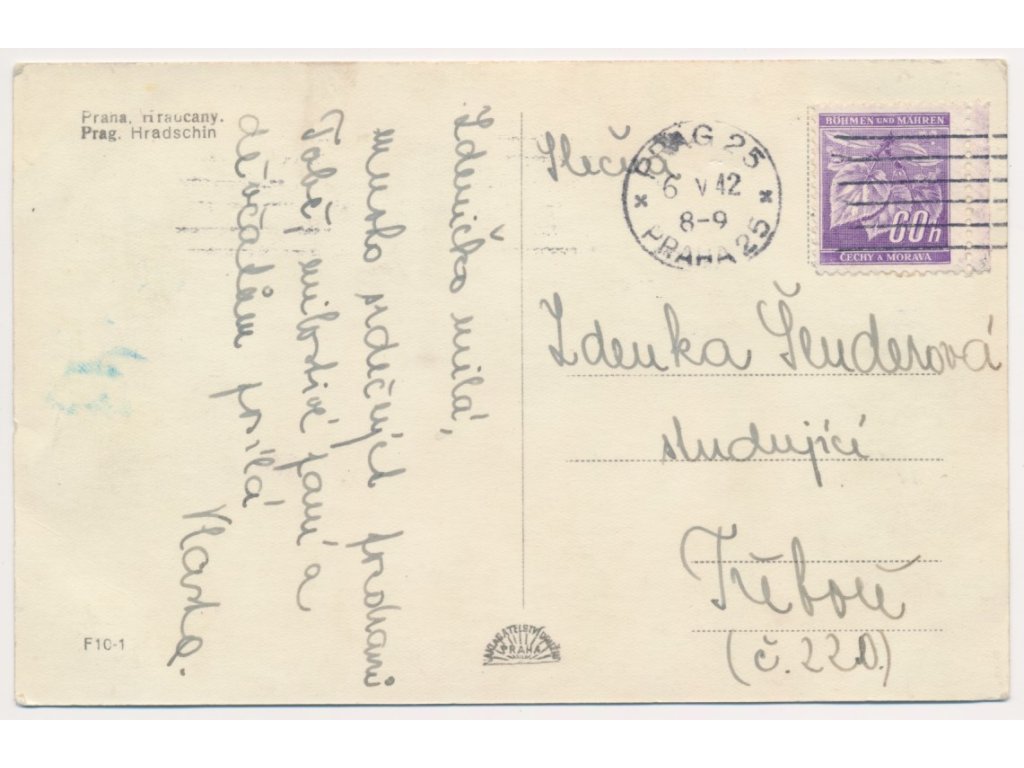 Praha, Hradčany.
Prag. Hradschin
Zdeničko milá,
mnoho srdečných pozdravů
Tobě, milostivé paní a
děvčatům posílá
Vlasta.
F10-1
PRAHA
PRAG 25
6 V 42
8-9
PRAHA 25
BÖHMEN UND MÄHREN
60h
ČECHY A MORAVA
Slečna
Zdenka Šenderová
studující
(č. 220.)